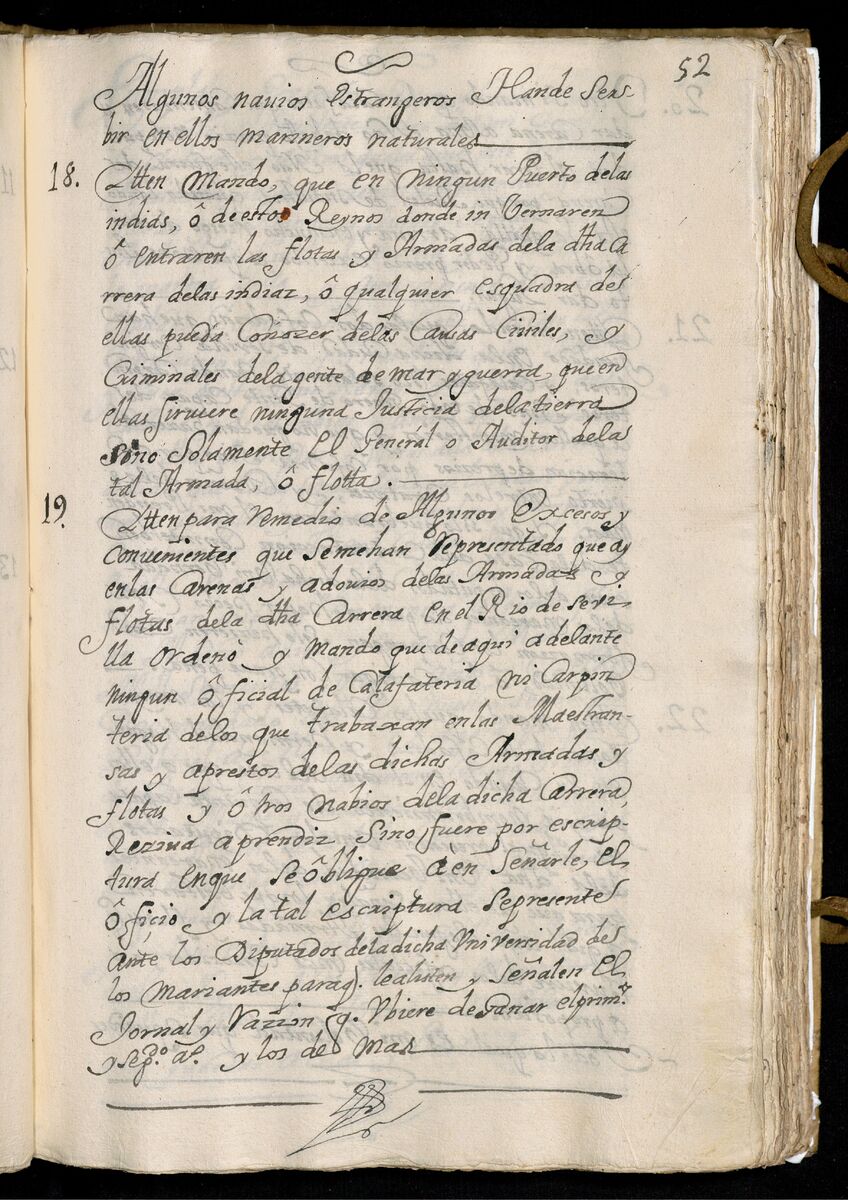 52
Algunos nauios estrangeros Hande Ser-
bir en ellos marineros naturales
18. Itten Mando, que en ningun Puerto delas
indias, ô de estos Reynos donde in Vernaren
ô entraren las flotas y Armadas dela dha Ca
rrera delas indiaz, ô qualquier esquadra de
ellas pueda Coñozer delas Causas Civiles, y
Criminales dela gente de mar y guerra, que en
ellas siruiere ninguna Justicia dela tierra
sino Solamente El General o Auditor dela
tal Armada, ô flotta.
19. Itten para Remedio de Algunos Excesos y
convenientes que Semehan Representado que ay
enlas Carenas y adouios delas Armadas y
flotas dela dha Carrera en el Rio de sevi-
lla ordeno y mando que de aqui adelante
ningun ôficial de Calafateria ni Carpin
teria delos que trabaxan enlas Maestran-
sas y aprestos delas dichas Armadas y
flotas y ôtros nabios dela dicha Carrera,
Reziua aprendiz Sino fuere por escrip-
tura enque Se ôbligue à en Señarle, el
ôficio y la tal escriptura Sepresente
ante los Diputados dela dicha Vniversidad de
los Mariantes paraq. le alisten y Señalen El
Jornal y Razzion q. Vbiere de Ganar el prim.º
y seg.do a.º y los de Mas